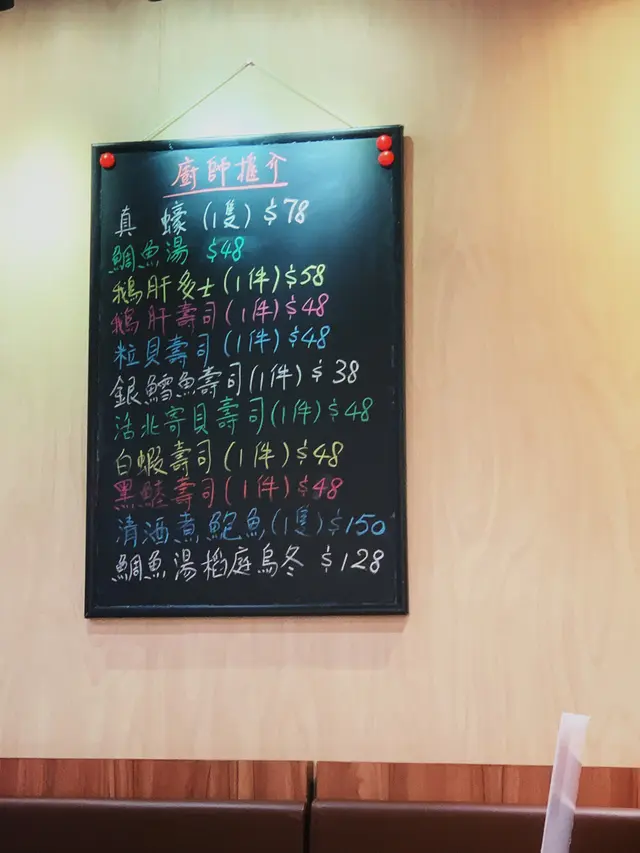 廚師推介
真 蠔 (1隻) $78
鯛魚湯 $48
鵝肝多士 (1件) $58
鵝肝壽司 (1件) $48
粒貝壽司 (1件) $48
銀鱈魚壽司 (1件) $38
活北寄貝壽司 (1件) $48
白蝦壽司 (1件) $48
黑鯥壽司 (1件) $48
清酒煮鮑魚 (1隻) $150
鯛魚湯稻庭烏冬 $128